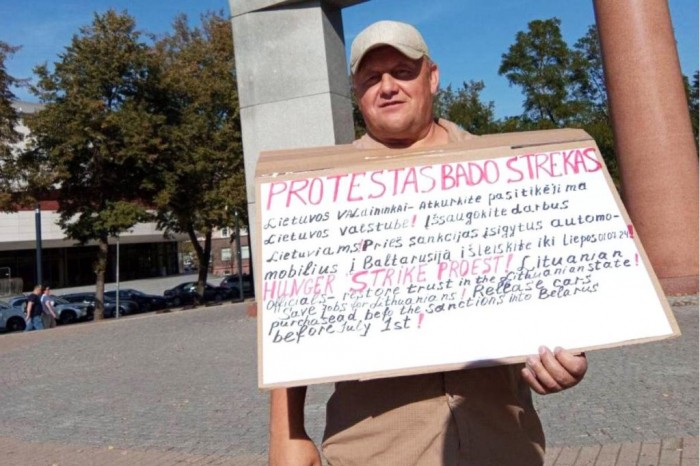 PROTESTAS BADO STREKAS
Lietuvos Valdininkai- Atkurkite pasitikėjima
Lietuvos valstube! Išsaugokite darbus
Lietuviams! Prieš sankcijas įsigytus automo-
mobilius į Baltarusiją išleiskite iki Liepos 01.07.24!
HUNGER STRIKE PROEST! Lithuanian
Officials- restore trust in the Lithuanian state!
Save jobs for Lithuanians! Release cars
purchasead before the sanctions into Belarus
before July 1st!